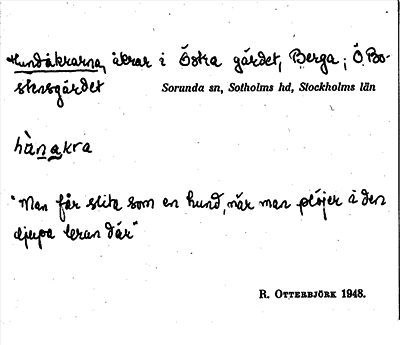 Hundåkrarna, åkrar i Östra gärdet, Berga; Ö Bo-
stensgärdet Sorunda sn, Sotholms hd, Stockholms län
hùnakra
"Man får slita som en hund, när man plöjer i den
djupa leran där"
R. OTTERBJÖRK 1948.